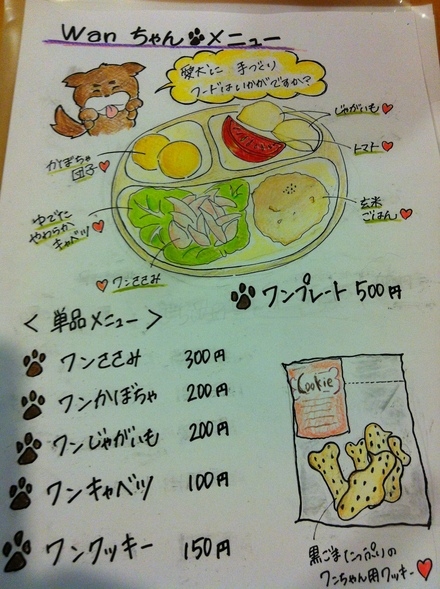 Wan ちゃん メニュー
愛犬に 手づくり
フードはいかがですか?
じゃがいも
トマト
かぼちゃ
団子
ゆでた
やわらか
キャベツ
玄米
ごはん
ワンささみ
ワンプレート 500円
<単品メニュー>
ワンささみ 300円
ワンかぼちゃ 200円
ワンじゃがいも 200円
ワンキャベツ 100円
ワンクッキー 150円
Cookie
黒ごまたっぷりの
ワンちゃん用クッキー